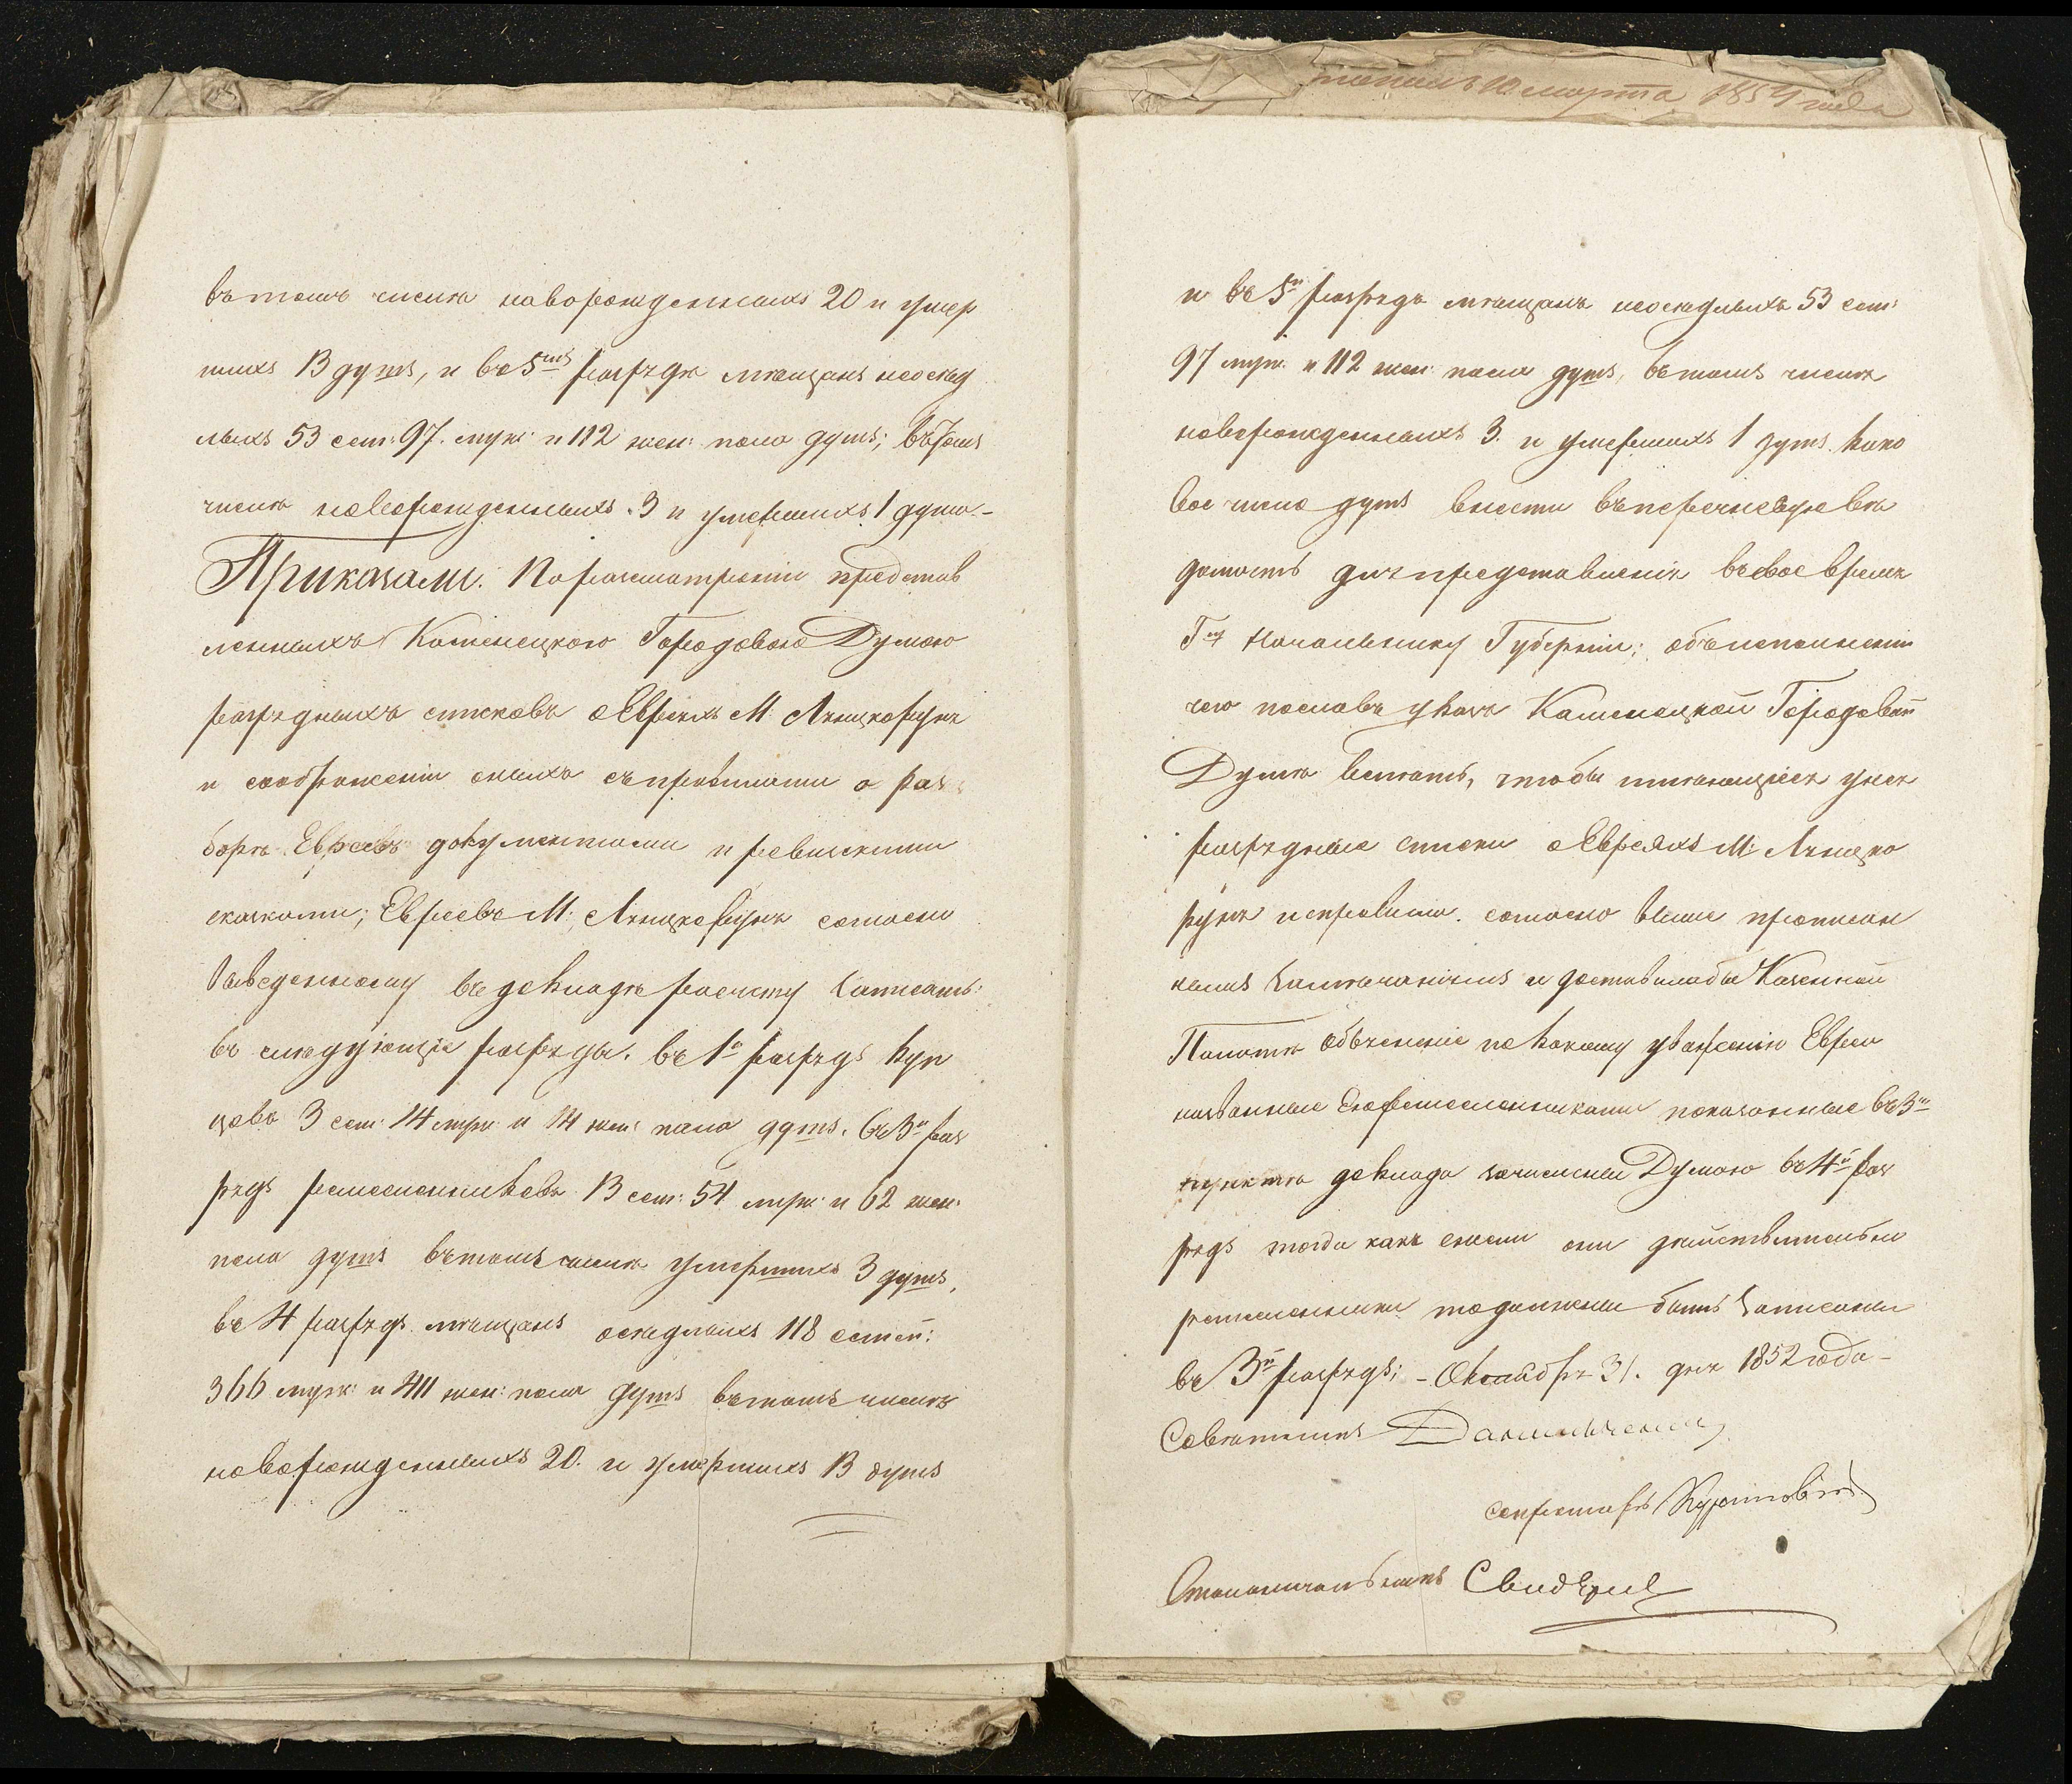 въ томъ числѣ новорожденныхъ 20 и умер
шихъ 13 душъ, и въ 5мъ разрядѣ мѣщанъ неосѣд
лыхъ 53 сем: 97. муж: и 112 жен: пола душъ; въ томъ
числѣ новорожденныхъ 3 и умершихъ 1 душа.-
Приказали: По разсмотреніи представ
ленныхъ Каменецкою Городовою Думою
разрядныхъ списковъ о Евреяхъ М: Лянцкорунѣ
и соображеніи оныхъ съ правилами о раз
борѣ Евреевъ документами и ревизскими
сказками; Евреевъ М: Лянцкорунѣ согласно
выведенному въ докладѣ разсчету записать:
въ слѣдующіе разряды. въ 1й разрядъ куп
цовъ 3 сем: 14 муж: и 14 жен: пола душъ. въ 3й раз
рядъ ремесленниковъ 13 сем: 54 муж: и 62 жен:
пола душъ въ томъ числѣ умершихъ 3 душъ,
въ 4 разрядъ мѣщанъ осѣдлыхъ 118 семей:
366 муж: и 411 жен: пола душъ въ томъ числѣ
новорожденныхъ 20. и умершихъ 13 душъ
марта 1854 года
и въ 5й разрядъ мѣщанъ неосѣдлыхъ 53 сем:
97 муж. и 112 жен: пола душъ, въ томъ числѣ
новорожденныхъ 3. и умершихъ 1 душъ. како
вое число душъ внести въ перечневую вѣ
домость для представленія въ свое время
Гну Начальнику Губерніи; объ исполненіи
чего пославъ указъ Каменецкой Городовой
Думѣ велѣть, чтобы имѣющіеся у нея
разрядные списки о Евреяхъ М: Лянцко
рунѣ исправила согласно выше прописан
нымъ замѣчаніямъ и доставила бы Казенной
Палатѣ объясненіе по какому уваженію Евреи
названные ремесленниками показанные въ 3й
пунктѣ доклада зачислены Думою въ 4й раз
рядъ тогда какъ если они дѣйствительно
ремесленники то должны быть записаны
въ 3й разрядъ; - Октября 31. дня 1852 года -
Совѣтникъ
Секретарь
Столоначальникъ